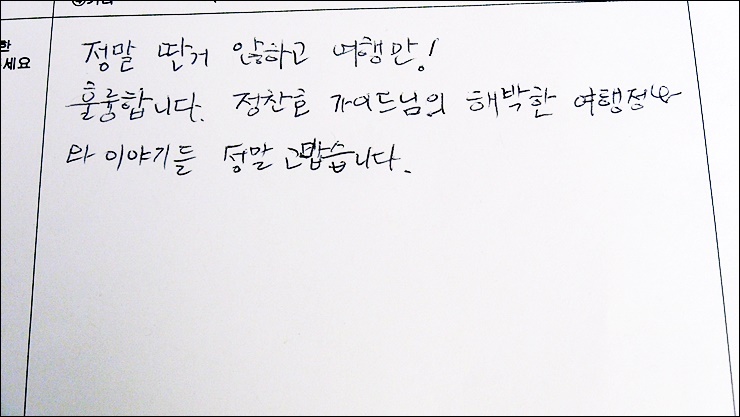 한
세요
정말 딴거 않하고 여행만!
훌륭합니다. 정찬호 가이드님의 해박한 여행정보
와 이야기들 정말 고맙습니다.